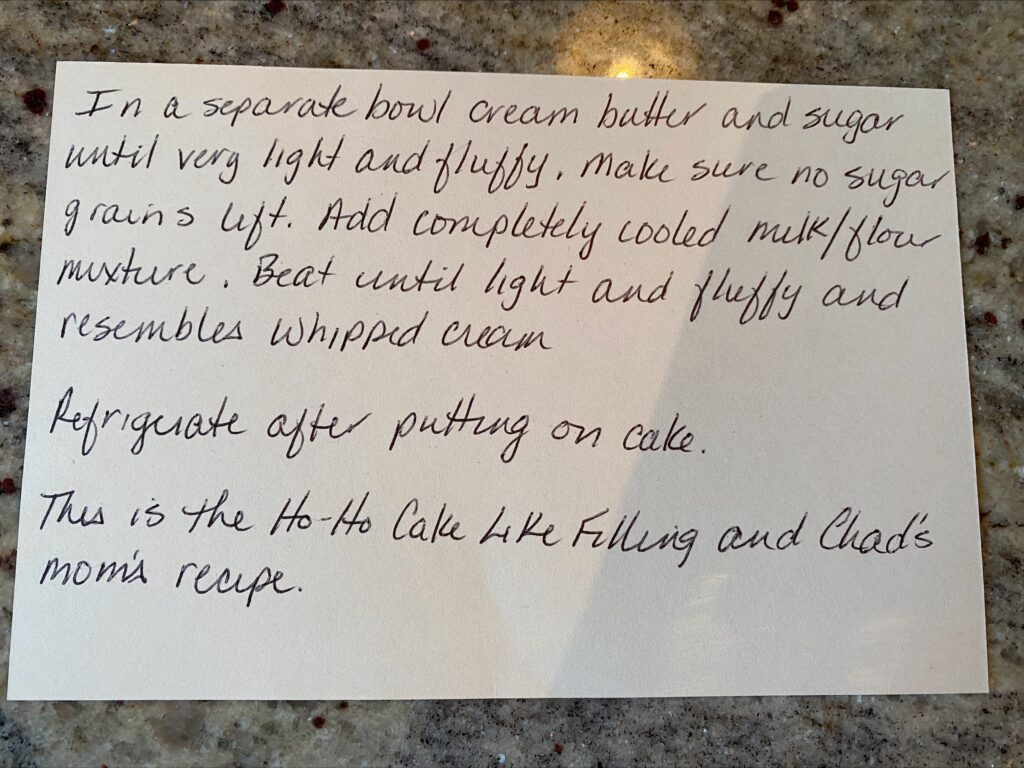 In a separate bowl cream butter and sugar
until very light and fluffy. Make sure no sugar
grains left. Add completely cooled milk/flour
mixture. Beat until light and fluffy and
resembles whipped cream
Refrigerate after putting on cake.
This is the Ho-Ho Cake Like Filling and Chad's
mom's recipe.